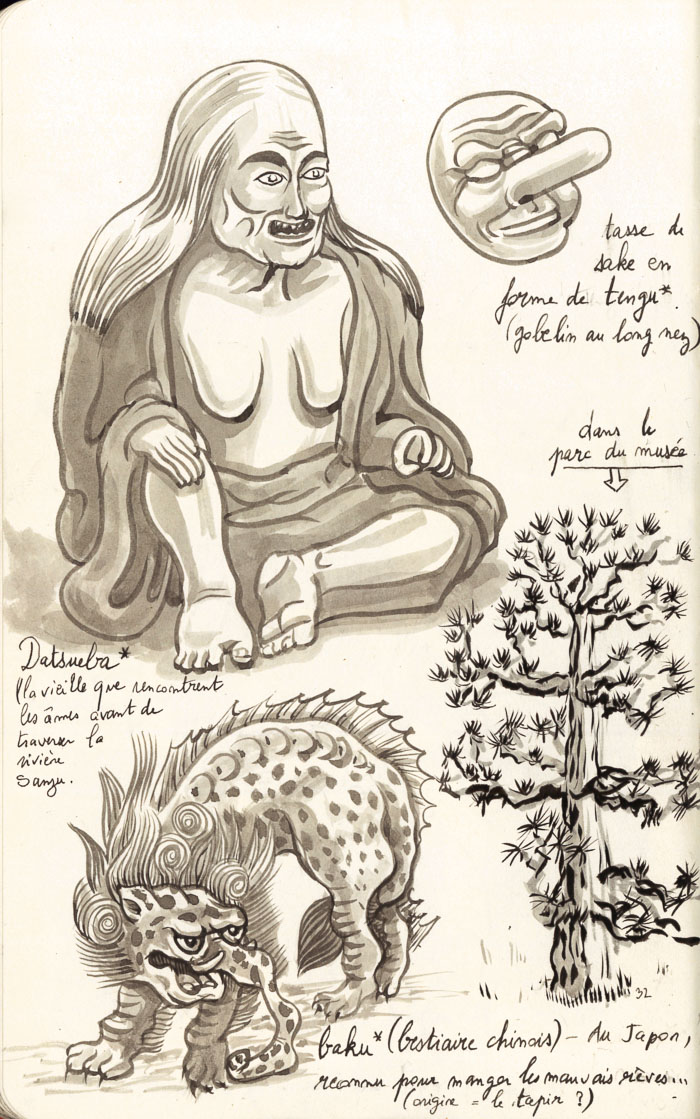 tasse de
sake en
forme de tengu*
(gobelin au long nez)
dans le
parc du musée
Datsueba*
la vieille que rencontrent
les âmes avant de
traverser la
rivière
Sanzu.
32
baku* (bestiaire chinois) – Au Japon,
reconnu pour manger les mauvais rêves...
(origine = le tapir ?)